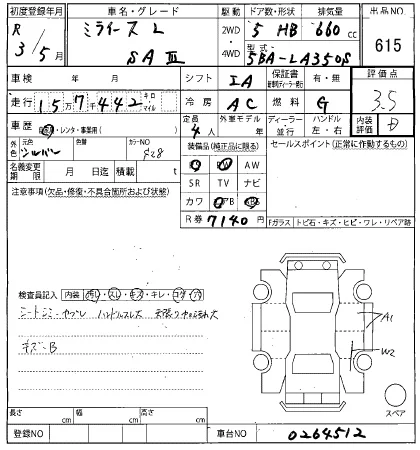 初度登録年月 車名・グレード 駆動 ドア数・形状 排気量 出品NO
R 3/5月 ミライース L SAⅢ 2WD・4WD 5 HB 660 cc 615
型式 5BA-LA350S
車検 年 月 シフト IA 保証書 有・無 評価点
走行 1万5 7千442 キロ マイル 冷房 AC 燃料 G 3.5
車歴 自家・レンタ・事業用( ) 定員 4人 外車モデル 年 ディーラー・並行 ハンドル 左・右 内装評価 D
外色 元色 シルバー 色替 カラーNO S28 装備品(純正品に限る) セールスポイント(正常に作動するもの)
PS PW AW
名義変更期限 月 日迄 積載 t SR TV ナビ
注意事項(欠品・修復・不具合箇所および状態) カワ エアB ABS
R券 7140円 Fガラス トビ石・キズ・ヒビ・ワレ・リペア跡
検査員記入 内装 汚れ・スレ・キズ・キレ・コゲ・穴
シートシミ・ヤブレ ハンドルスレ大 天張り
キズ・B
A1
W2
スペア
長さ cm 幅 cm 高さ cm
登録NO 車台NO 0264512